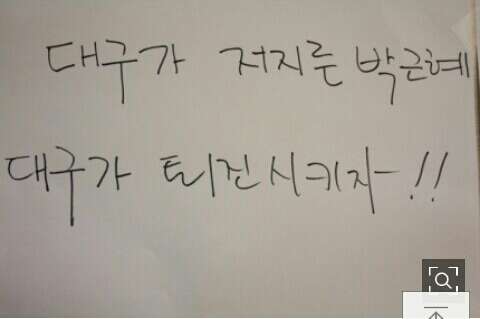 대구가 저지른 박근혜
대구가 퇴진시키자!!